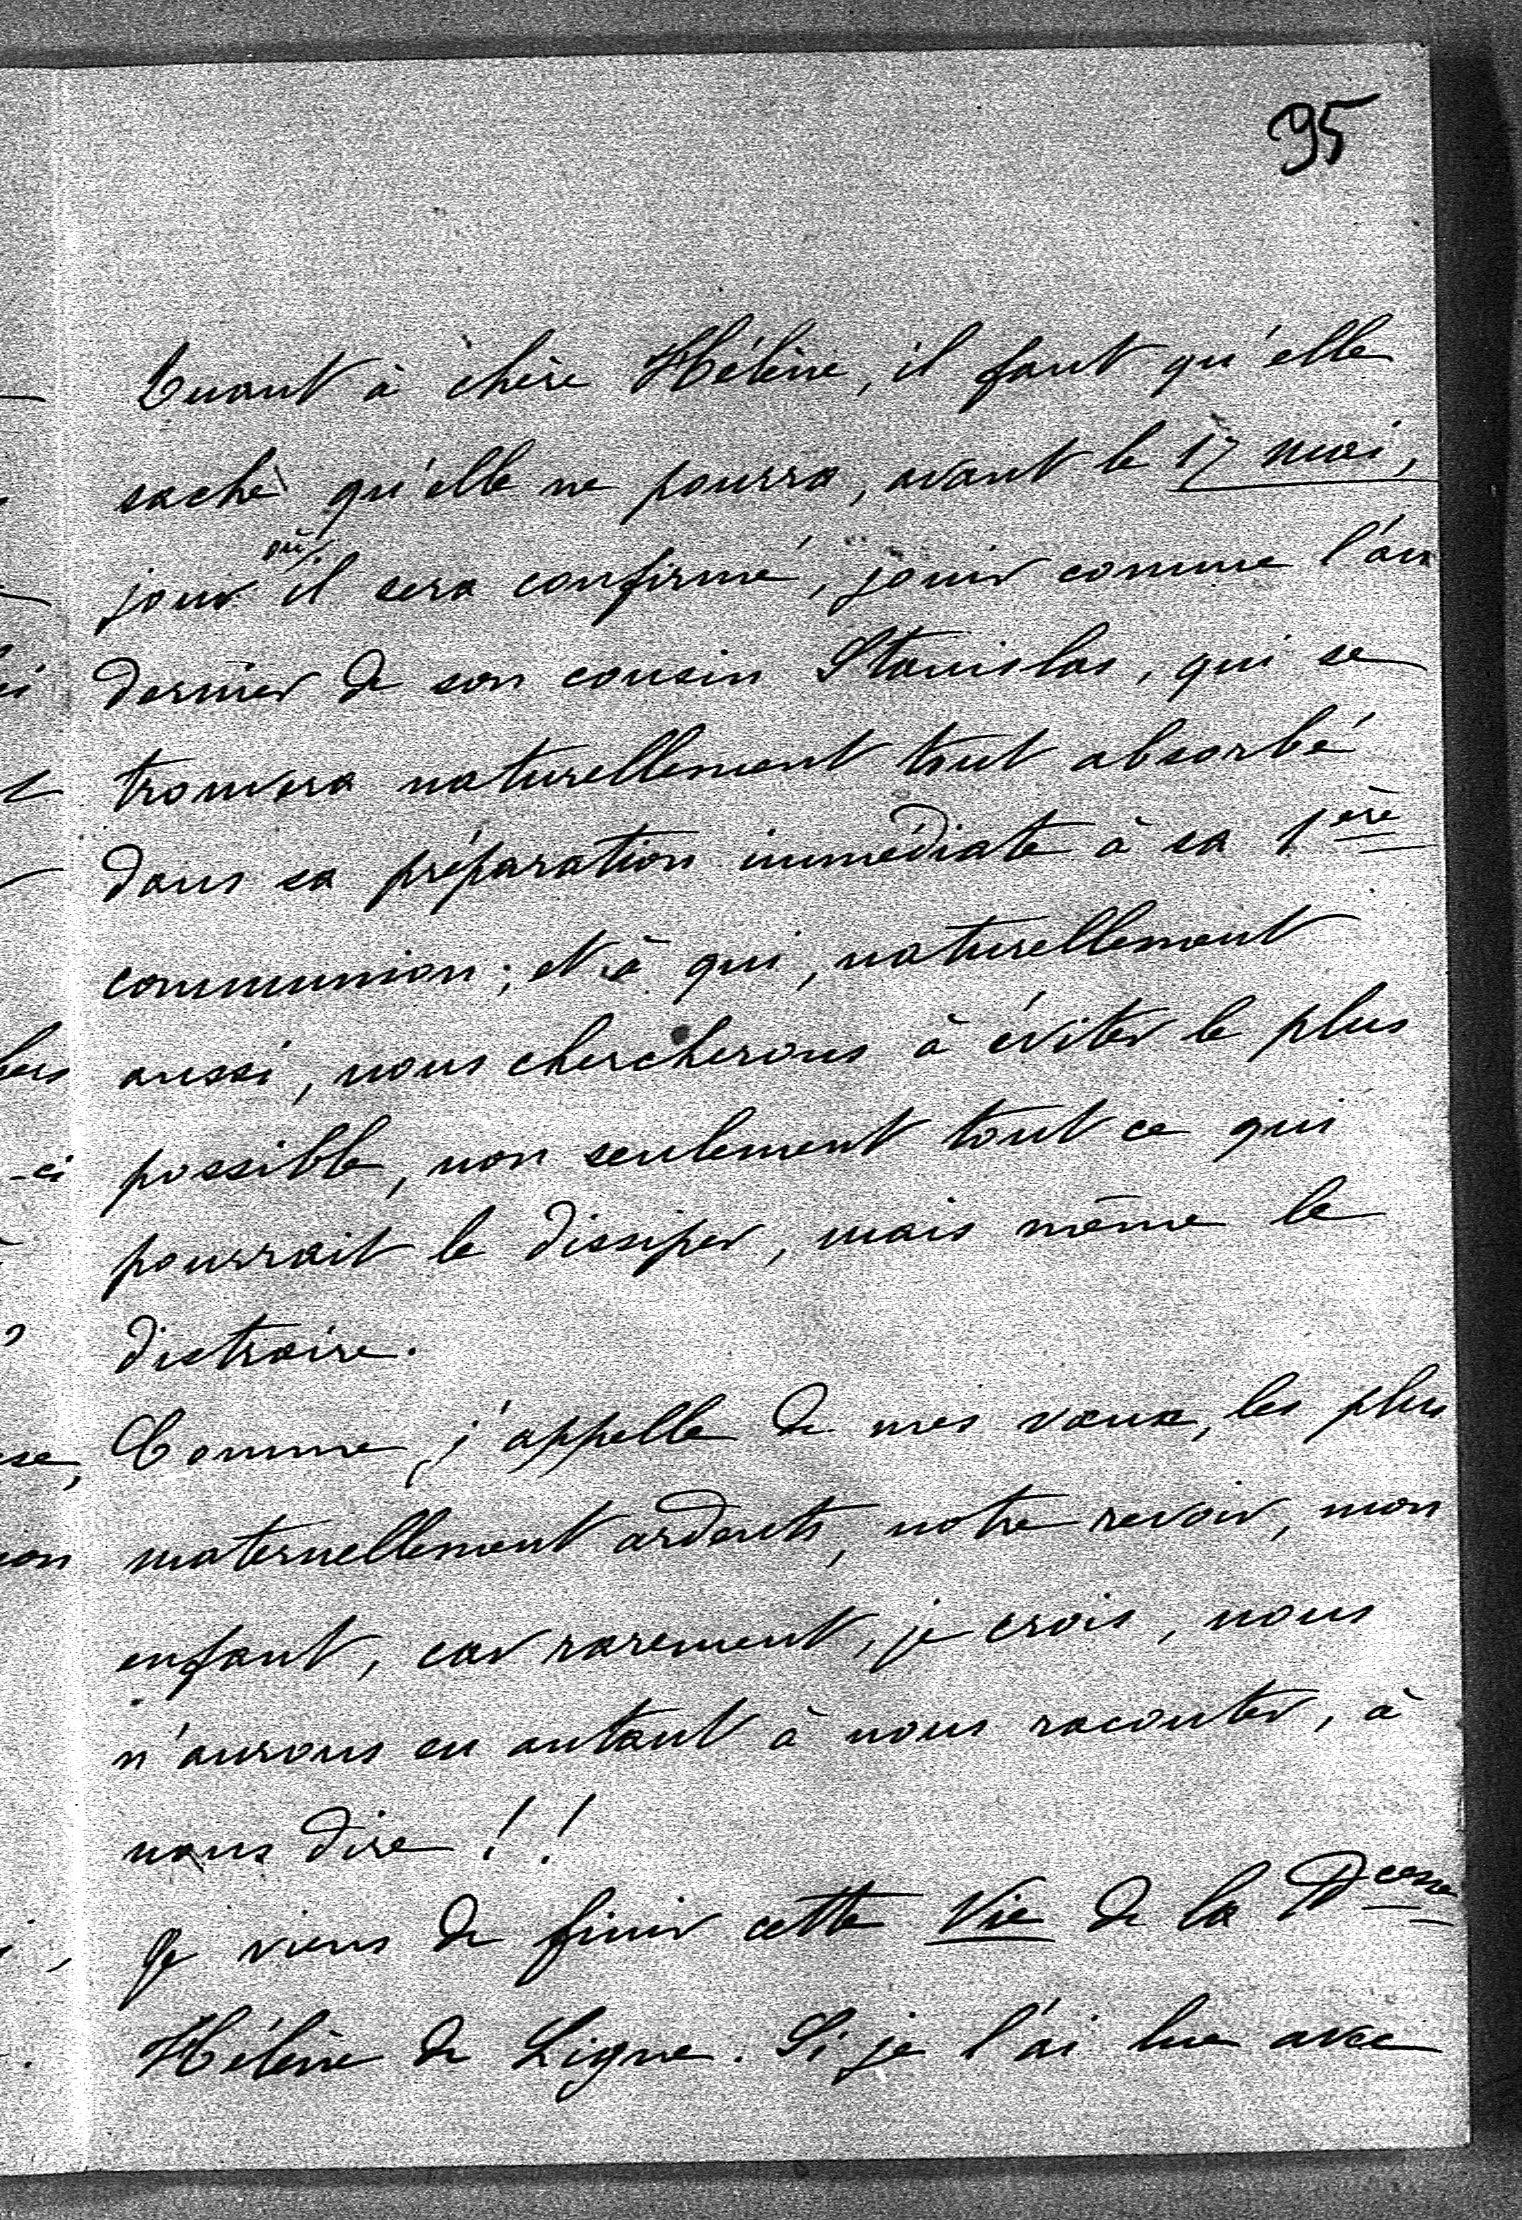 95
Quant à chère Hélène, il faut qu'elle
sache qu'elle ne pourra, avant le 17 mai,
jour où il sera confirmé, jouir comme l'an
dernier de son cousin Stanislas, qui se
trouvera naturellement tout absorbé
dans sa préparation immédiate à sa 1ère
communion; et à qui, naturellement
aussi, nous chercherons à éviter le plus
possible, non seulement tout ce qui
pourrait le dissiper, mais même le
distraire.
Comme j'appelle de mes vœux, les plus
maternellement ardents, notre revoir, mon
enfant, car rarement, je crois, nous
n'aurons eu autant à nous raconter, à
nous dire!!
Je viens de finir cette Vie de la Pcesse
Hélène de Ligne. Si je l'ai lue avec